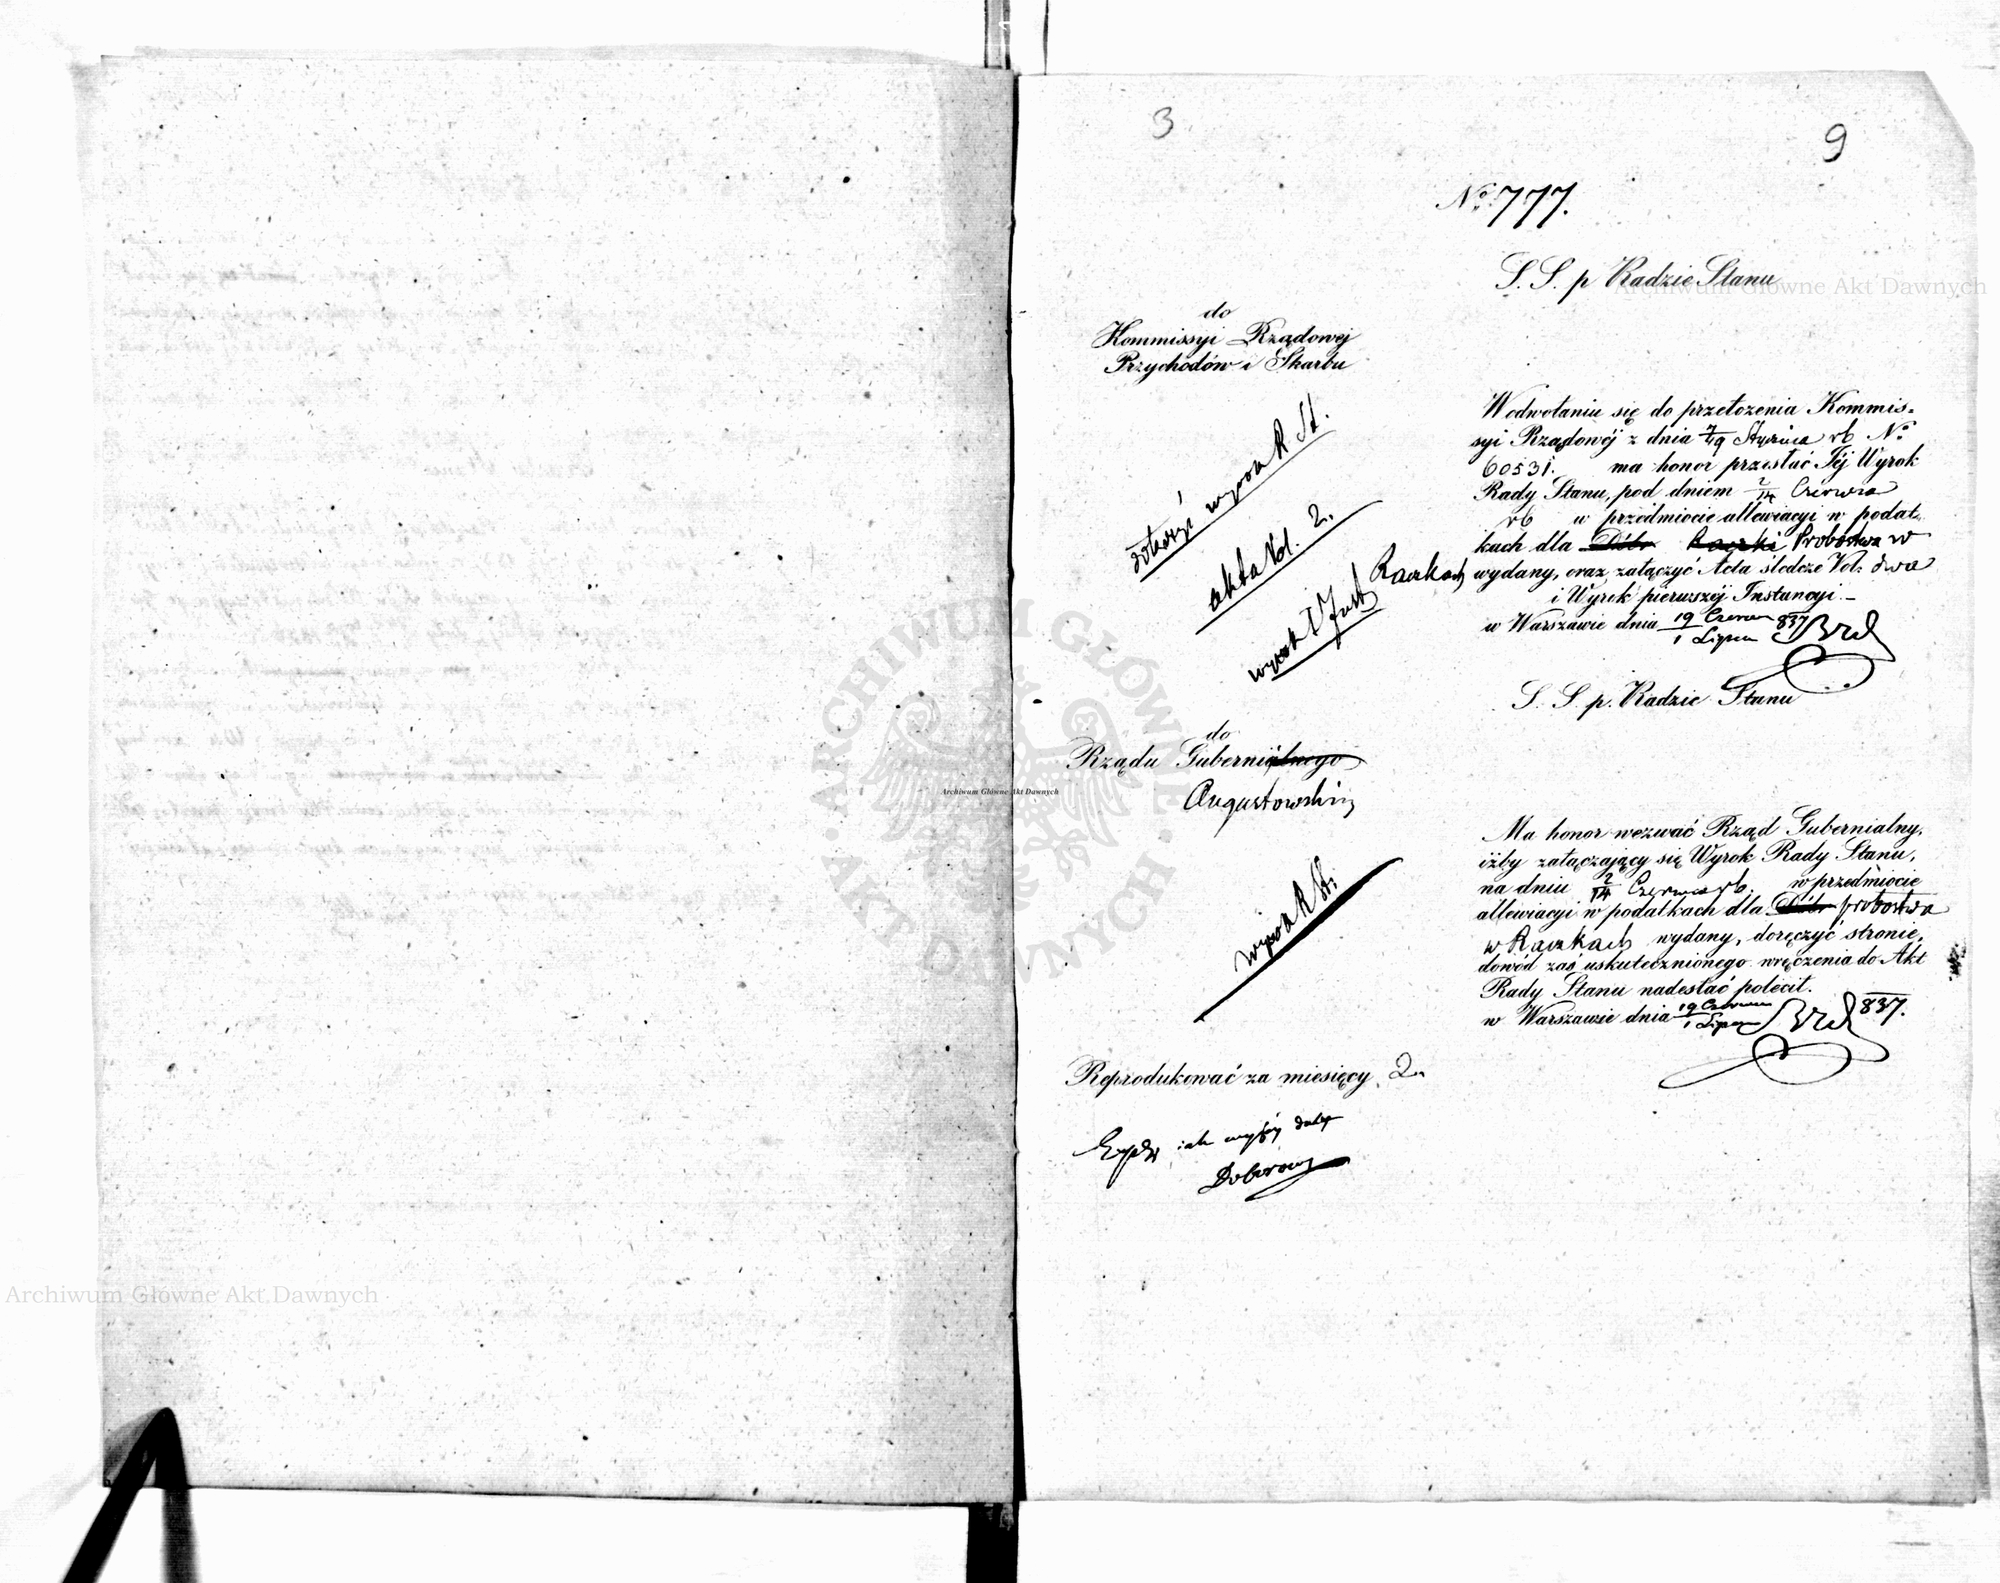 3
9
№ 777.
S. S. p Radzie Stanu
do
Kommissyi Rządowej
Przychodów i Skarbu
W odwołaniu się do przełożenia Kommis=
syi Rządowéj z dnia 7/19 Stycznia rb №
60531. ma honor przesłać Jéj Wyrok
Rady Stanu, pod dniem 2/14 Czerwca
rb w przedmiocie allewiacyi w podat=
kach dla Dóbr Raczki Probostwa w
Raczkach wydany, oraz załączyć Acta śledcze Vol: dwa
i Wyrok pierwszéj Instancyi. –
w Warszawie dnia 19 Czerwca / 1 Lipca 837
dołączyć wyrok R St.
akta Vol. 2.
wyrok I Inst
S. S. p. Radzie Stanu
do
Rządu Gubernialnego
Augustowskiego
Ma honor wezwać Rząd Gubernialny,
iżby załączający się Wyrok Rady Stanu,
na dniu 2/14 Czerwca rb. w przedmiocie
allewiacyi w podatkach dla Dóbr probostwa
w Raczkach wydany, doręczyć stronie,
dowód zaś uskutecznionego wręczenia do Akt
Rady Stanu nadesłać polecił.
w Warszawie dnia 19 Czerwca / 1 Lipca 837.
wyrok R St.
Reprodukować za miesięcy 2
jak wyżej
Archiwum Główne Akt Dawnych
Archiwum Główne Akt Dawnych
Archiwum Główne Akt Dawnych
ARCHIWUM GŁÓWNE AKT DAWNYCH